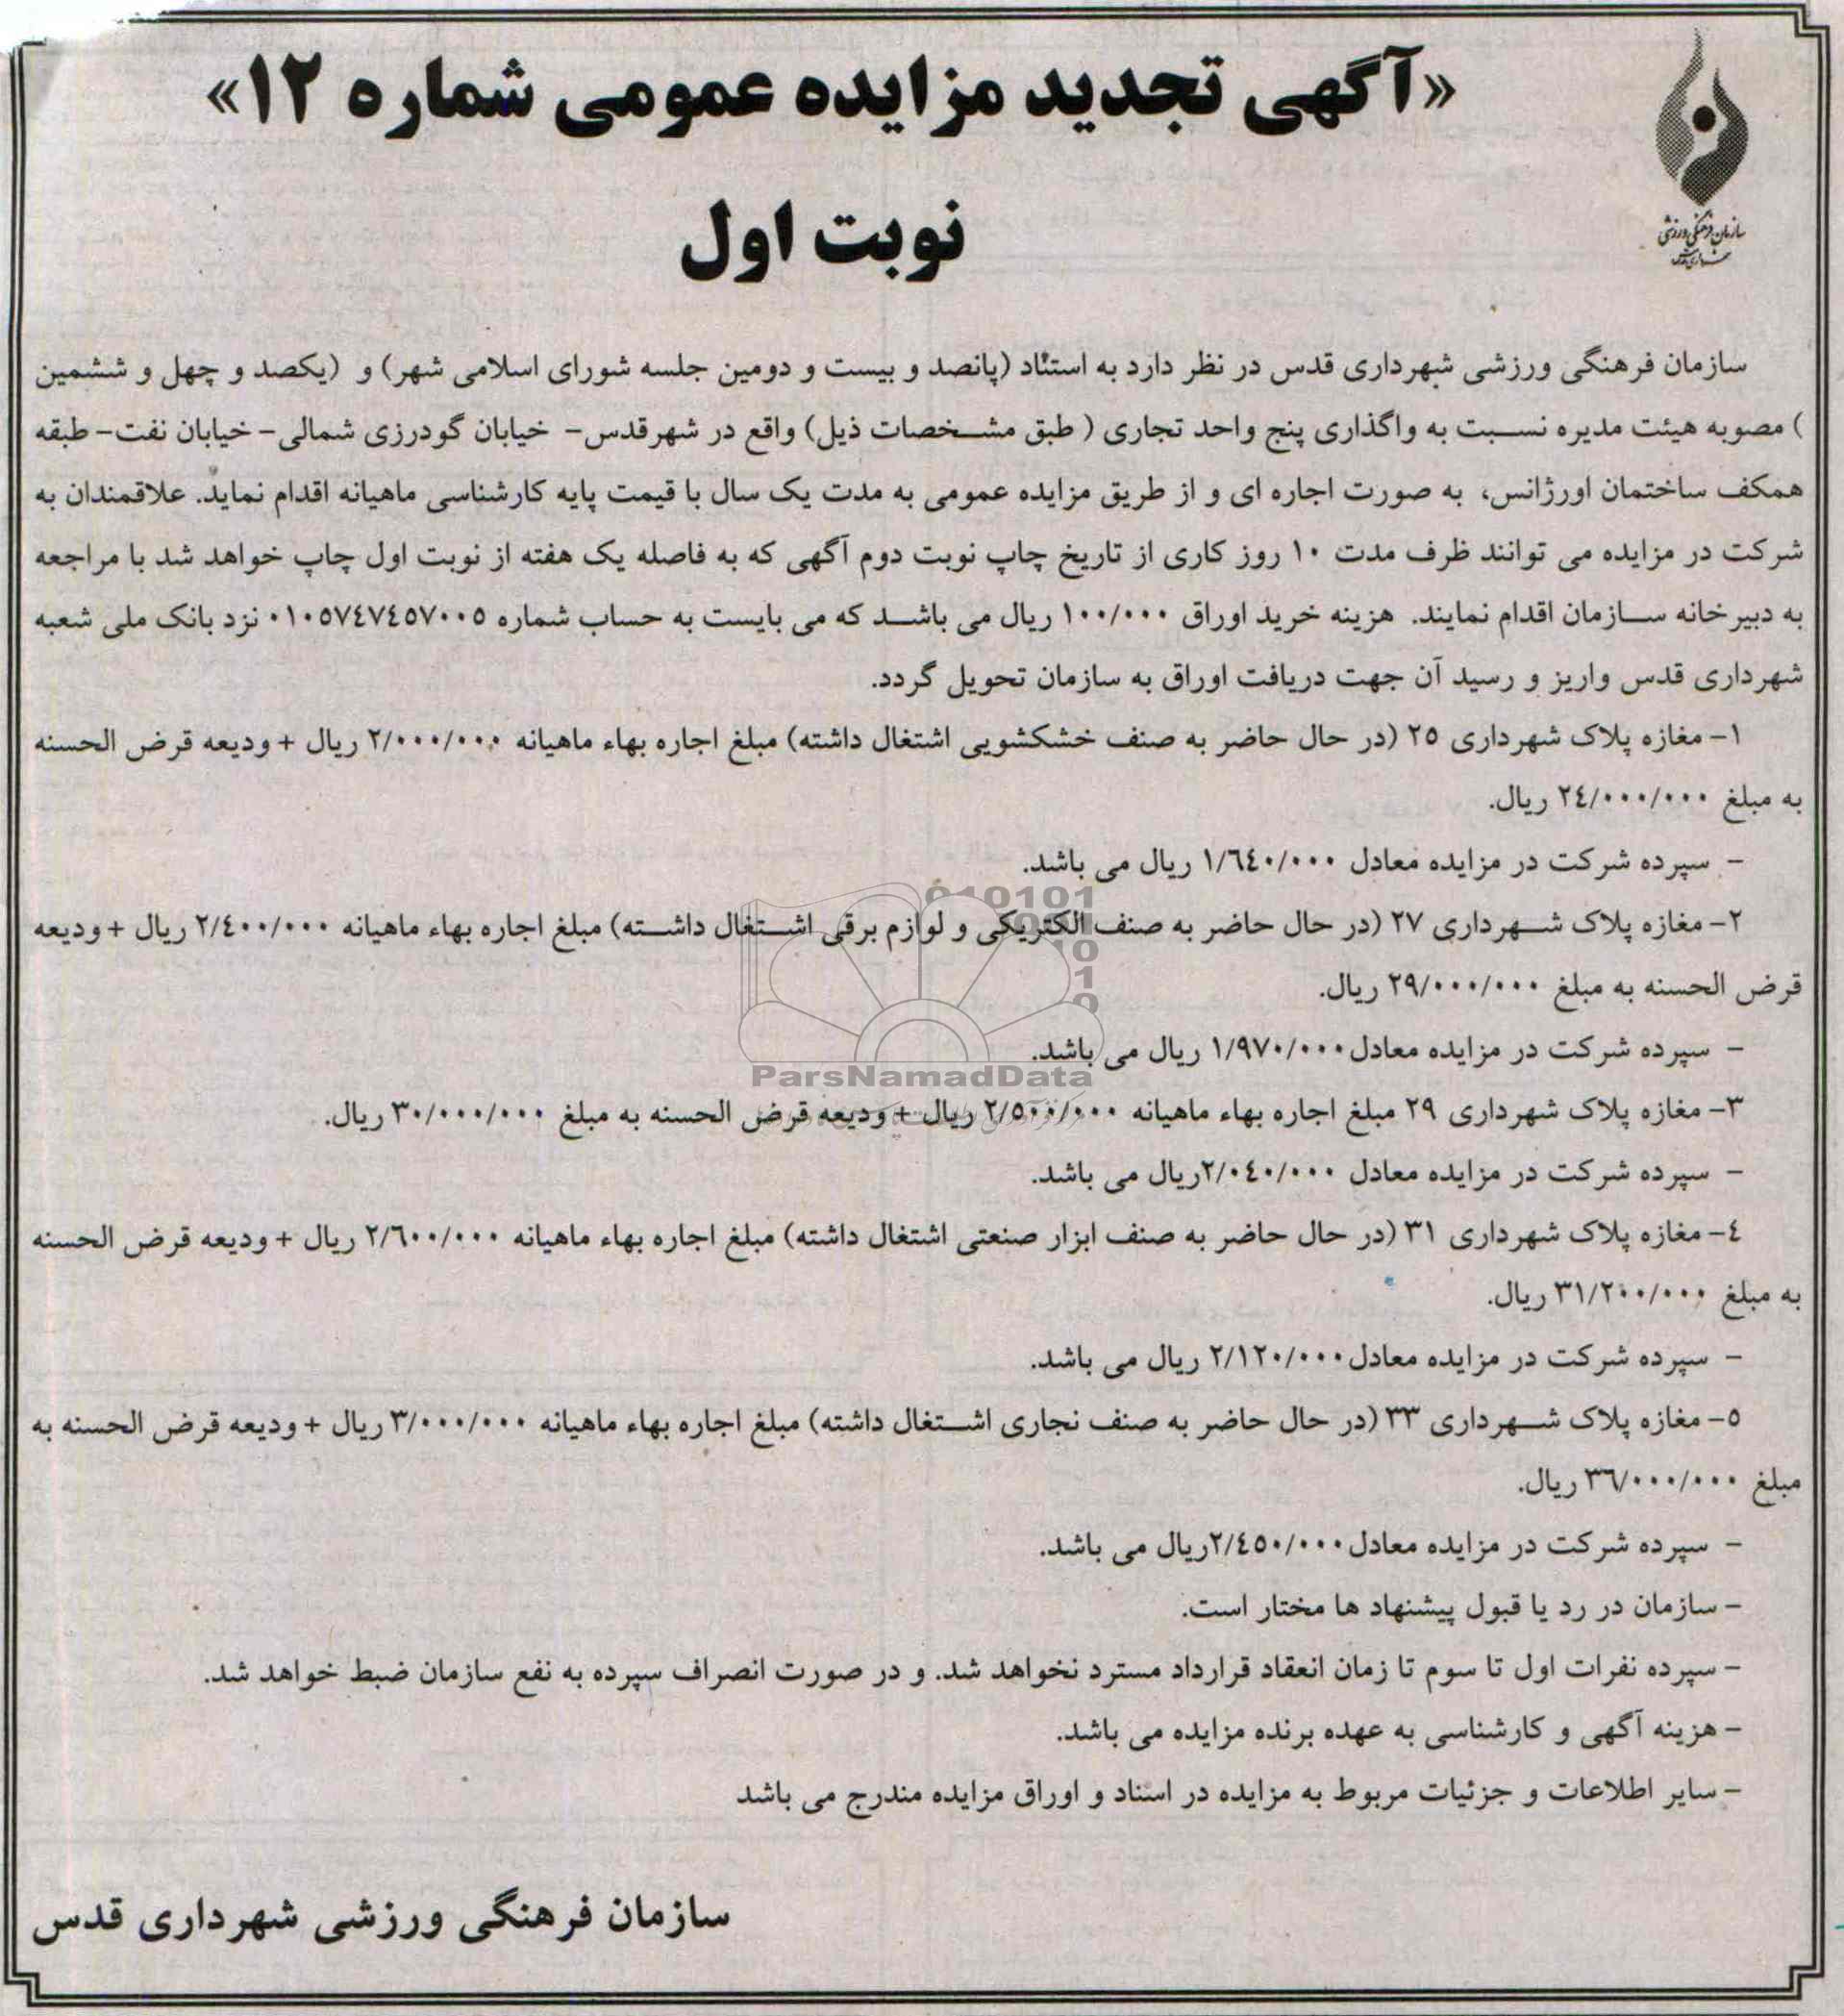 «آگهی تجدید مزایده عمومی شماره ۱۲»
سازمان فرهنگی ورزشی
شهرداری قدس
نوبت اول
سازمان فرهنگی ورزشی شهرداری قدس در نظر دارد به استناد (پانصد و بیست و دومین جلسه شورای اسلامی شهر) و (یکصد و چهل و ششمین
) مصوبه هیئت مدیره نسبت به واگذاری پنج واحد تجاری ( طبق مشخصات ذیل) واقع در شهرقدس- خیابان گودرزی شمالی- خیابان نفت- طبقه
همکف ساختمان اورژانس، به صورت اجاره ای و از طریق مزایده عمومی به مدت یک سال با قیمت پایه کارشناسی ماهیانه اقدام نماید. علاقمندان به
شرکت در مزایده می توانند ظرف مدت ۱۰ روز کاری از تاریخ چاپ نوبت دوم آگهی که به فاصله یک هفته از نوبت اول چاپ خواهد شد با مراجعه
به دبیرخانه سازمان اقدام نمایند. هزینه خرید اوراق ۱۰۰/۰۰۰ ریال می باشد که می بایست به حساب شماره ۰۱۰۵۷٤۷٤۵۷۰۰۵ نزد بانک ملی شعبه
شهرداری قدس واریز و رسید آن جهت دریافت اوراق به سازمان تحویل گردد.
۱- مغازه پلاک شهرداری ۲۵ (در حال حاضر به صنف خشکشویی اشتغال داشته) مبلغ اجاره بهاء ماهیانه ۲/۰۰۰/۰۰۰ ریال + ودیعه قرض الحسنه
به مبلغ ۲٤/۰۰۰/۰۰۰ ریال.
- سپرده شرکت در مزایده معادل ۱/٦٤۰/۰۰۰ ریال می باشد.
۲- مغازه پلاک شهرداری ۲۷ (در حال حاضر به صنف الکتریکی و لوازم برقی اشتغال داشته) مبلغ اجاره بهاء ماهیانه ۲/٤۰۰/۰۰۰ ریال + ودیعه
قرض الحسنه به مبلغ ۲۹/۰۰۰/۰۰۰ ریال.
- سپرده شرکت در مزایده معادل۱/۹۷۰/۰۰۰ ریال می باشد.
ParsNamadData
۳- مغازه پلاک شهرداری ۲۹ مبلغ اجاره بهاء ماهیانه ۲/۵۰۰/۰۰۰ ریال + ودیعه قرض الحسنه به مبلغ ۳۰/۰۰۰/۰۰۰ ریال.
- سپرده شرکت در مزایده معادل ۲/۰٤۰/۰۰۰ریال می باشد.
٤- مغازه پلاک شهرداری ۳۱ (در حال حاضر به صنف ابزار صنعتی اشتغال داشته) مبلغ اجاره بهاء ماهیانه ۲/٦۰۰/۰۰۰ ریال + ودیعه قرض الحسنه
به مبلغ ۳۱/۲۰۰/۰۰۰ ریال.
- سپرده شرکت در مزایده معادل۲/۱۲۰/۰۰۰ ریال می باشد.
۵- مغازه پلاک شهرداری ۳۳ (در حال حاضر به صنف نجاری اشتغال داشته) مبلغ اجاره بهاء ماهیانه ۳/۰۰۰/۰۰۰ ریال + ودیعه قرض الحسنه به
مبلغ ۳٦/۰۰۰/۰۰۰ ریال.
- سپرده شرکت در مزایده معادل۲/٤۵۰/۰۰۰ریال می باشد.
- سازمان در رد یا قبول پیشنهاد ها مختار است.
- سپرده نفرات اول تا سوم تا زمان انعقاد قرارداد مسترد نخواهد شد. و در صورت انصراف سپرده به نفع سازمان ضبط خواهد شد.
- هزینه آگهی و کارشناسی به عهده برنده مزایده می باشد.
- سایر اطلاعات و جزئیات مربوط به مزایده در اسناد و اوراق مزایده مندرج می باشد
سازمان فرهنگی ورزشی شهرداری قدس